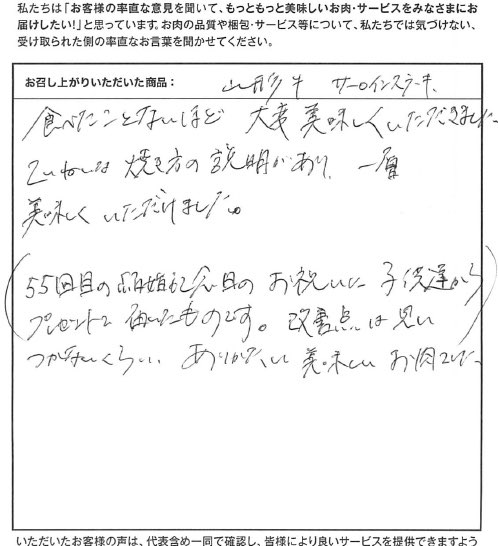 私たちは「お客様の率直な意見を聞いて、もっともっと美味しいお肉・サービスをみなさまに
お届けしたい！」と思っています。お肉の品質や梱包・サービス等について、私たちでは気づけない、
受け取られた側の率直なお言葉を聞かせてください。
お召し上がりいただいた商品： 山形牛 サーロインステーキ、
食べたことないほど 大変 美味しくいただきました。
ていねいな 焼き方の説明があり、一層
美味しく いただけました。
(55回目の結婚記念日の お祝いに 子供達から
プレゼントで 届いたものです。改善点は思い
つかないくらい、ありがたい 美味しい お肉でした。)
いただいたお客様の声は、代表含め一同で確認し、皆様により良いサービスを提供できますよう